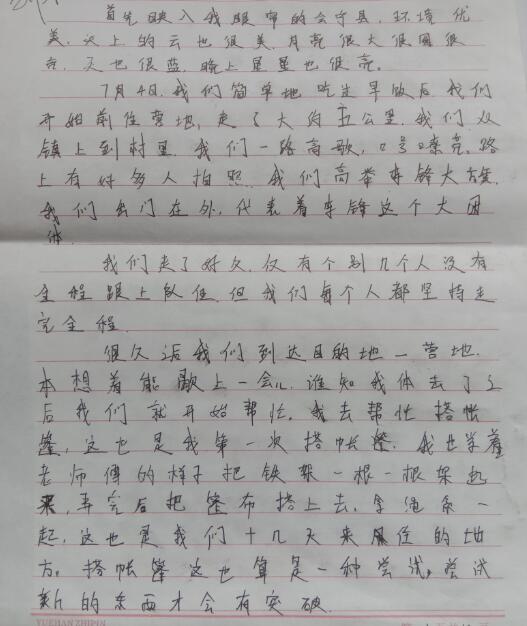 首先映入我眼帘的会宁县,环境优
美,天上的云也很美,月亮很大很圆很
亮,天也很蓝,晚上星星也很亮。
7月4日,我们简单地吃过早饭后我们
开始前往营地,走了大约五公里,我们从
镇上到村里,我们一路高歌,口号嘹亮,路
上有好多人拍照,我们高举东锋大旗,
我们出门在外,代表着东锋这个大团
体.
我们走了好久,仅有个别几个人没有
全程跟上队伍,但我们每个人都坚持走
完全程.
很久后我们到达目的地一营地.
本想着能歇上一会儿,谁知我们去了之
后我们就开始帮忙,我去帮忙搭帐
篷,这也是我第一次搭帐篷,我也学着
老师傅的样子把铁架一根一根架起
来,弄完后把篷布搭上去,拿绳条一
起,这也是我们十几天来居住的地
方。搭帐篷这也算是一种尝试,尝试
新的东西才会有突破.
YUEHAN ZHIPIN